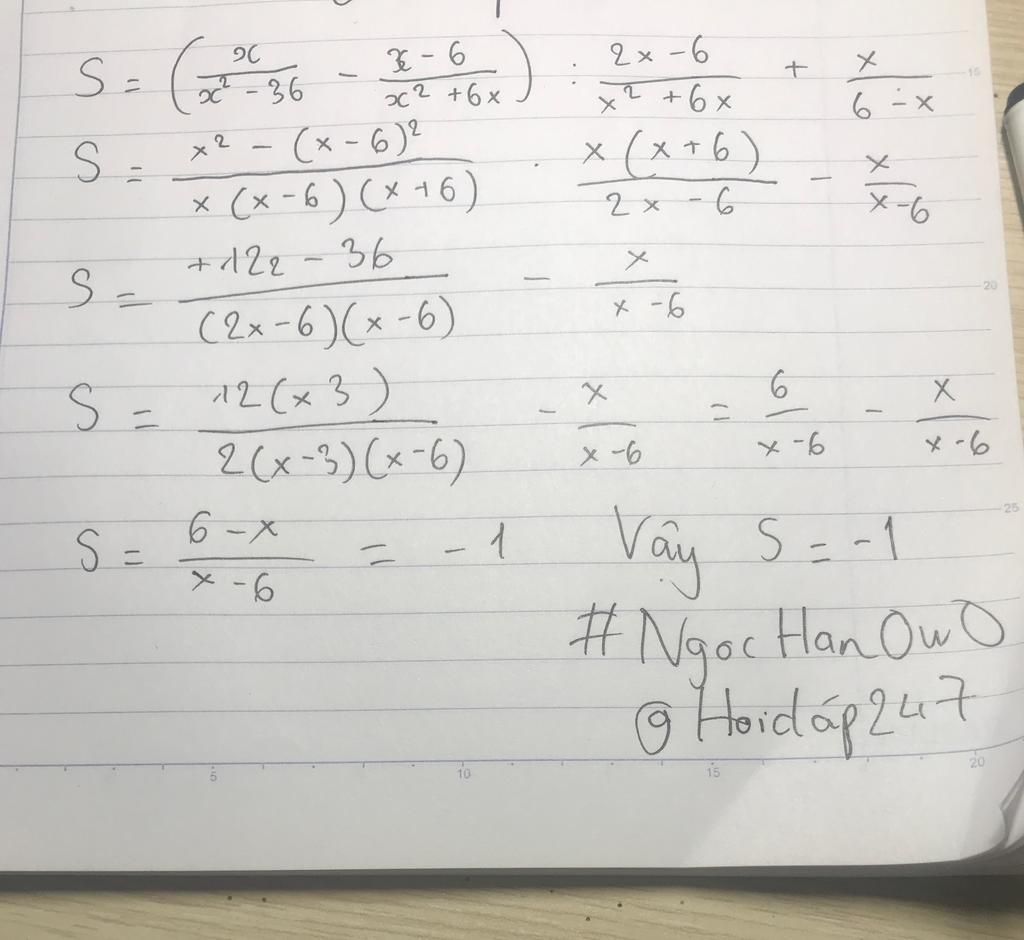 S = (x/(x² - 36) - (x - 6)/(x² + 6x)) : (2x - 6)/(x² + 6x) + x/(6 - x)
S = (x² - (x - 6)²)/(x(x - 6)(x + 6)) . x(x + 6)/(2x - 6) - x/(x - 6)
S = (+12x - 36)/((2x - 6)(x - 6)) - x/(x - 6)
S = 12(x 3)/(2(x - 3)(x - 6)) - x/(x - 6) = 6/(x - 6) - x/(x - 6)
S = (6 - x)/(x - 6) = -1 Vây S = -1
#NgocHanOwO
@Hoidáp247
15
20
25
5 10 15 20